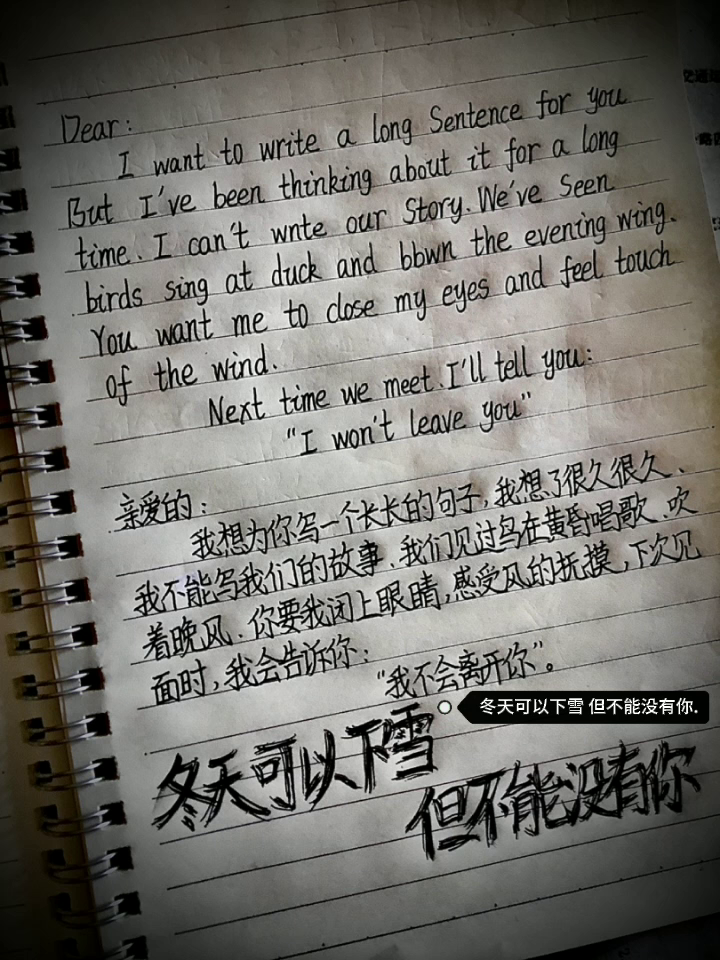 Dear:
I want to write a long Sentence for you
But I've been thinking about it for a long
time. I can't wnte our Story. We've Seen
birds sing at duck and bbwn the evening wing.
You want me to close my eyes and feel touch
of the wind.
Next time we meet. I'll tell you:
"I won't leave you"
亲爱的:
我想为你写一个长长的句子,我想了很久很久、
我不能写我们的故事、我们见过鸟在黄昏唱歌、吹
着晚风、你要我闭上眼睛,感受风的抚摸,下次见
面时,我会告诉你:
"我不会离开你"。
冬天可以下雪 但不能没有你.
冬天可以下雪
但不能没有你